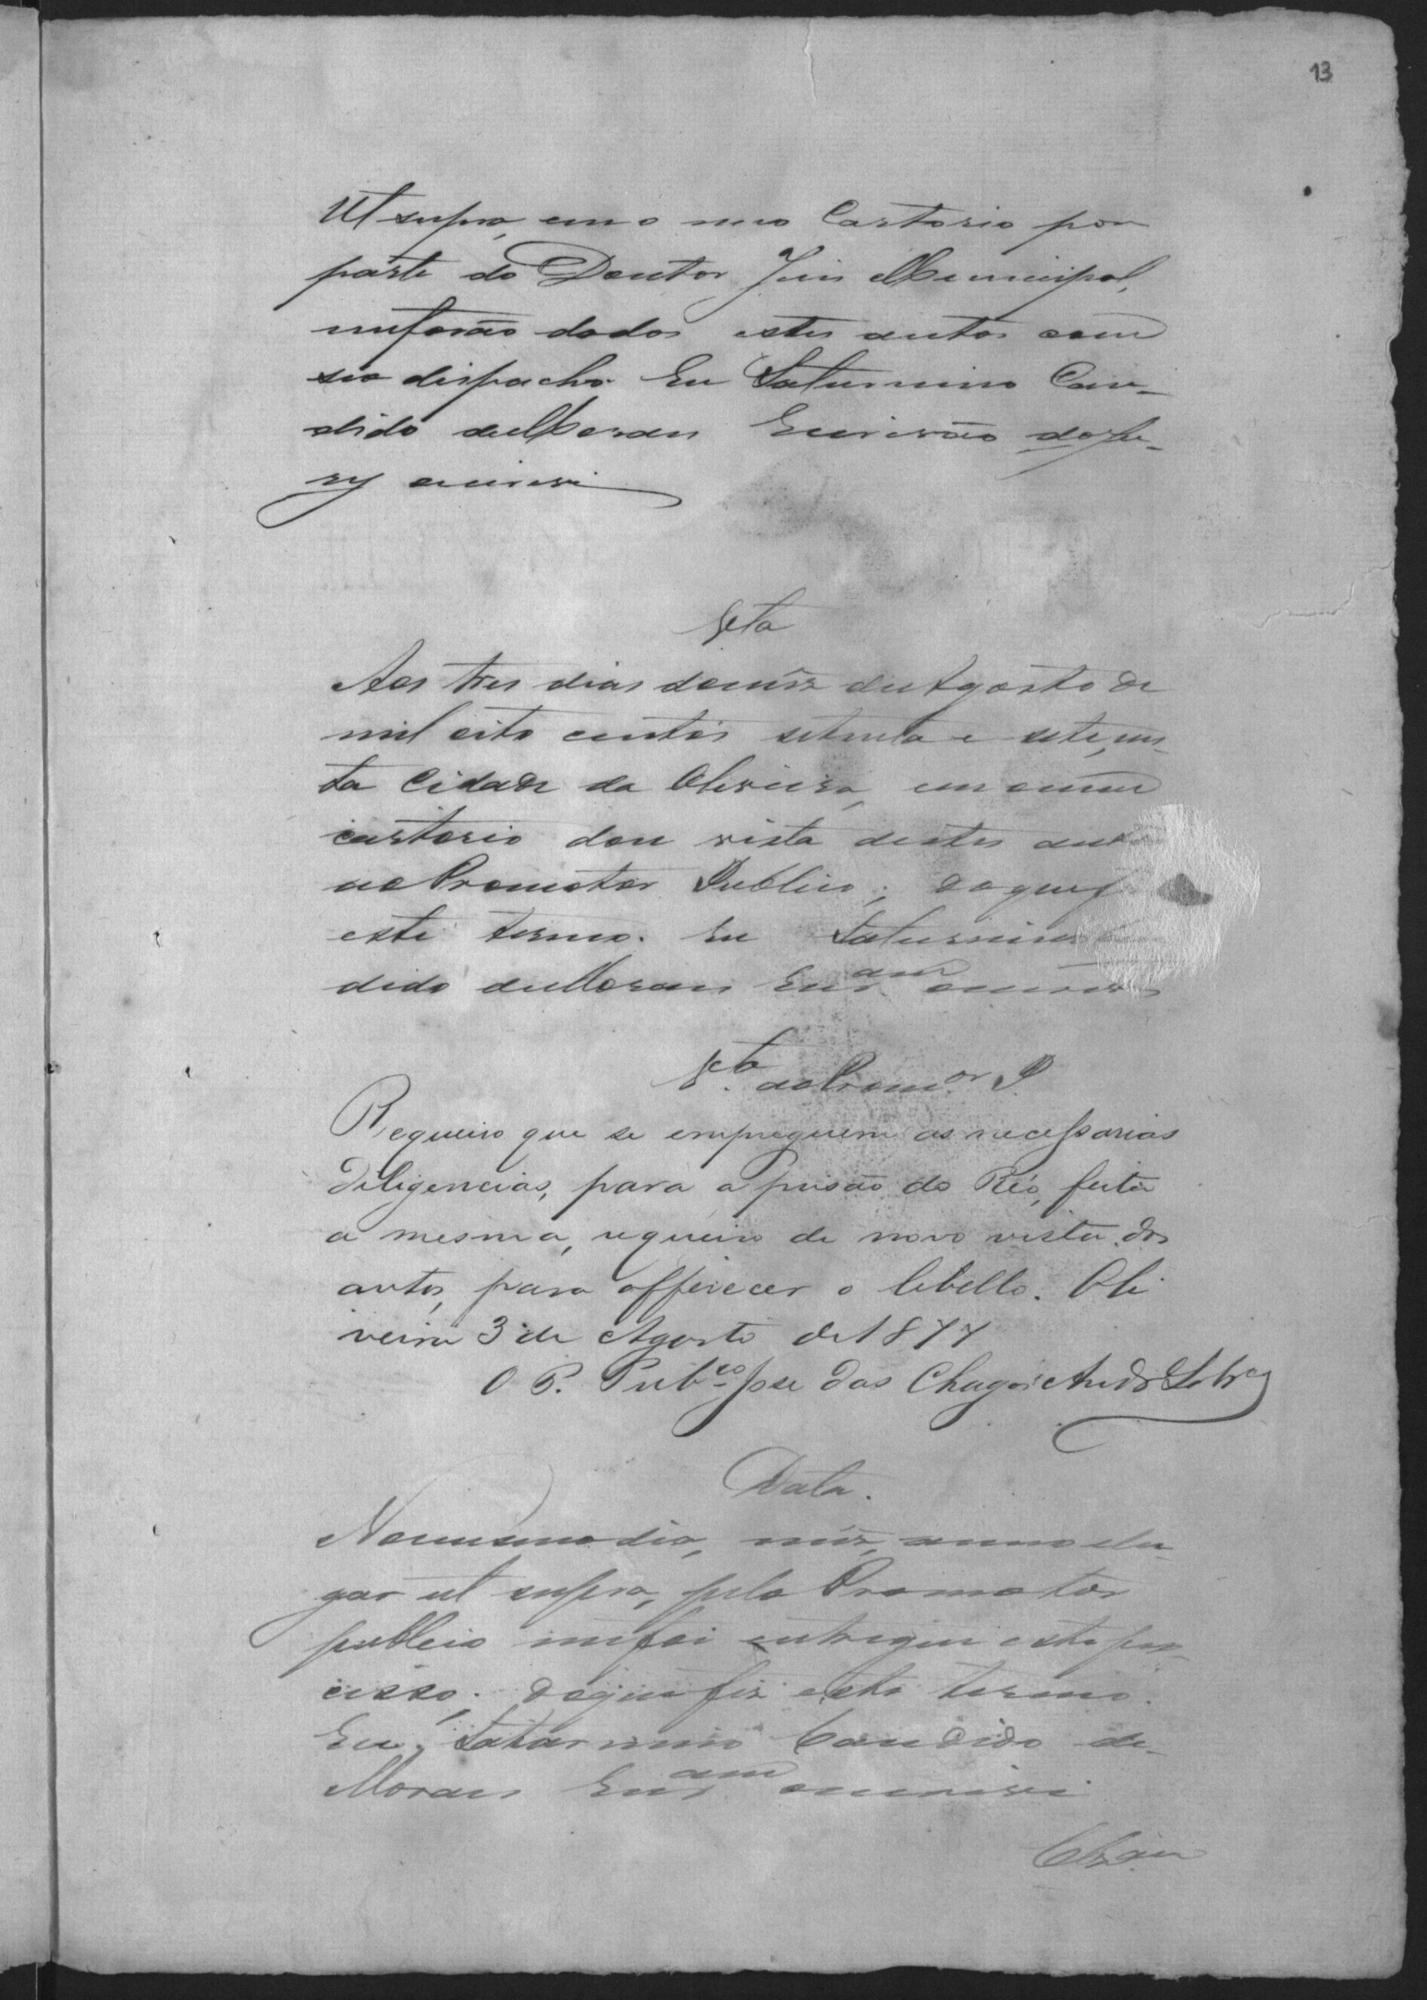 13
Ut supra, em o meo Cartorio por
parte do Doutor Juis Municipal,
me forão dados estes autos com
seo dispacho. Eu Saturnino Can-
dido de Moraes Escrivão do Ju-
ry escrevi
Vta
Aos tres dias do mez de Agosto de
mil oito centos setenta e sete, nes-
ta Cidade da Oliveira, em o meu
cartorio dou vista destes autos
ao Promotor Publico; do que f
este termo. Eu Saturnino
dido de Moraes Escram escrevi
Vta ao Promor P.
Requeiro que se empreguem as necessarias
diligencias, para a prisão do Réo, feita
a mesma, requeiro de novo vista dos
autos, para offerecer o libello. Oli
veira 3 de Agosto de 1877
O P. Pubco Jose das Chagas Andre Sobro
Data.
No mesmo dia, mez, anno e lu-
gar ut supra, pelo Promotor
publico me foi entregue este pro-
cesso; do que fiz este termo.
Eu, Saturnino Candido de
Moraes Escram escrevi